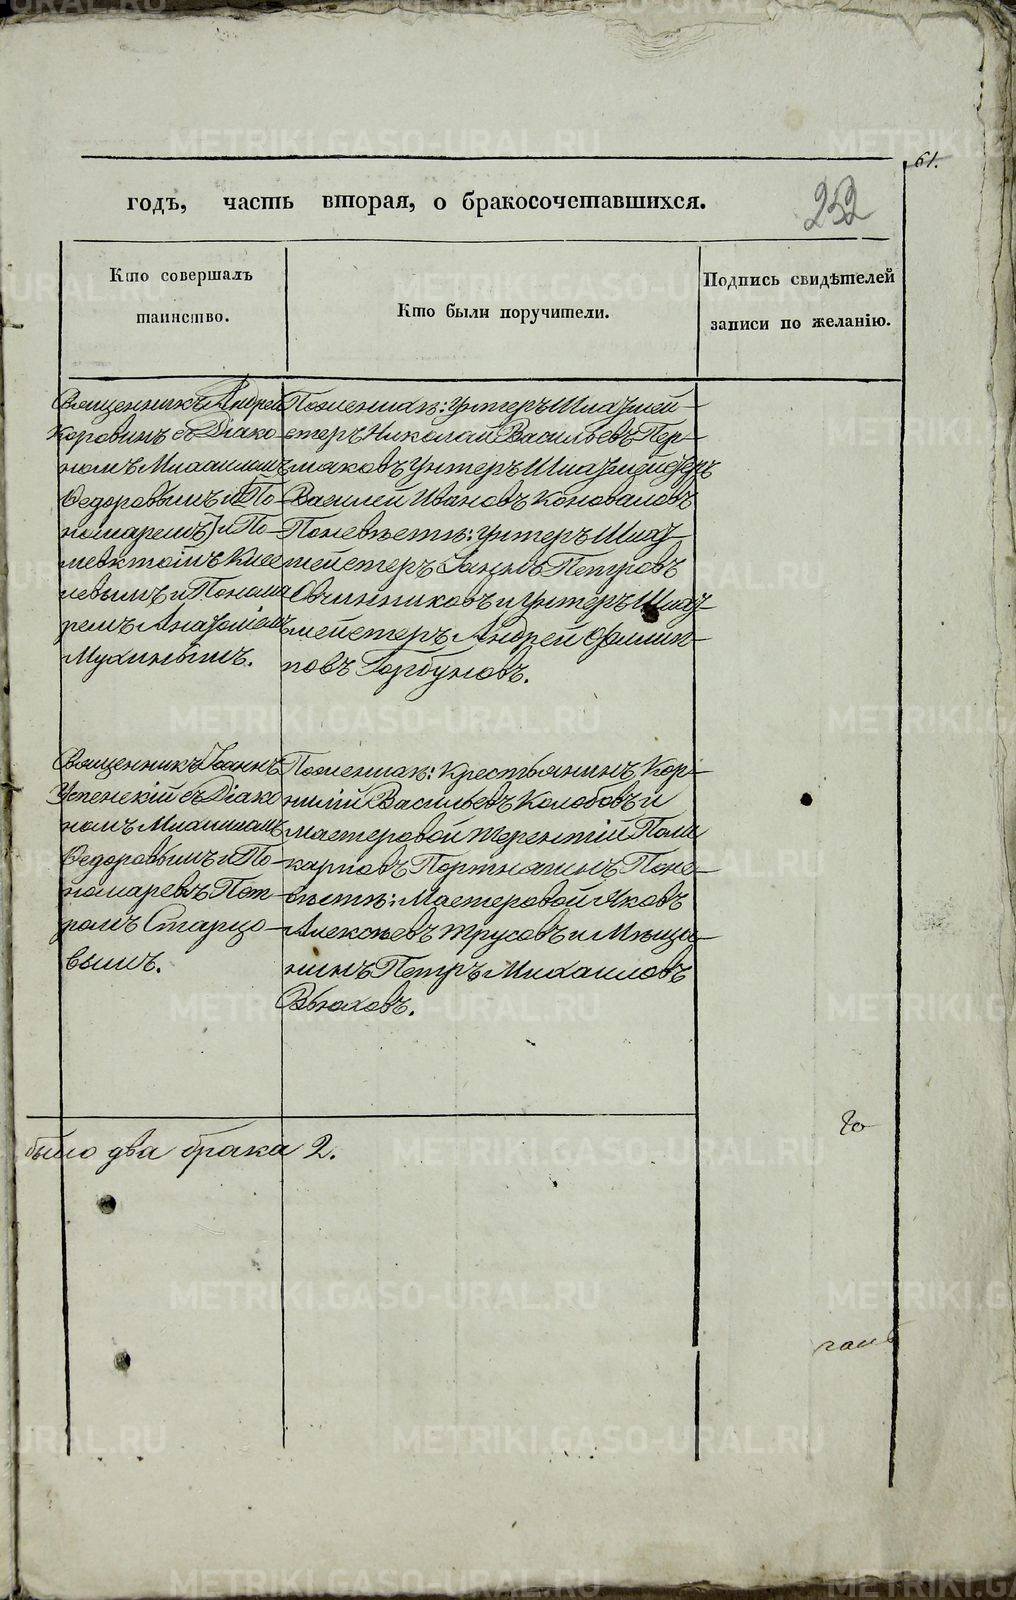 61.
годъ, часть вторая, о бракосочетавшихся.
252
Кто совершалъ
таинство.
Кто были поручители.
Подпись свидѣтелей
записи по желанію.
Священникъ Андрей
Коровинъ съ Діако-
номъ Михаиломъ
Ѳедоровымъ и По-
номаремъ и По-
левымъ и Понома
ремъ
Мухинымъ.
По женихѣ: Унтеръ Шихтмей-
стеръ Николай Васильевъ Пер-
мяковъ Унтеръ Шихтмейстеръ
Василей Ивановъ Коноваловъ
По невѣстѣ: Унтеръ Шихт
мейстеръ Петровъ
Овчинниковъ и Унтеръ Шихт
мейстеръ Андрей Филип-
повъ Горбуновъ.
Священникъ Іоаннъ
Успенскій съ Діако
номъ Михаиломъ
Ѳедоровымъ и По-
номаремъ Пет-
ромъ Старцо-
вымъ.
По женихѣ: Крестьянинъ Кор-
нилій Васильевъ Колобовъ и
мастеровой Терентій Поли
карповъ Портнягинъ По не-
вѣстѣ: Мастеровой Яковъ
Алексѣевъ Трусовъ и Мѣща-
нинъ Петръ Михаиловъ
Вьюховъ.
было два брака 2.
METRIKI.GASO-URAL.RU